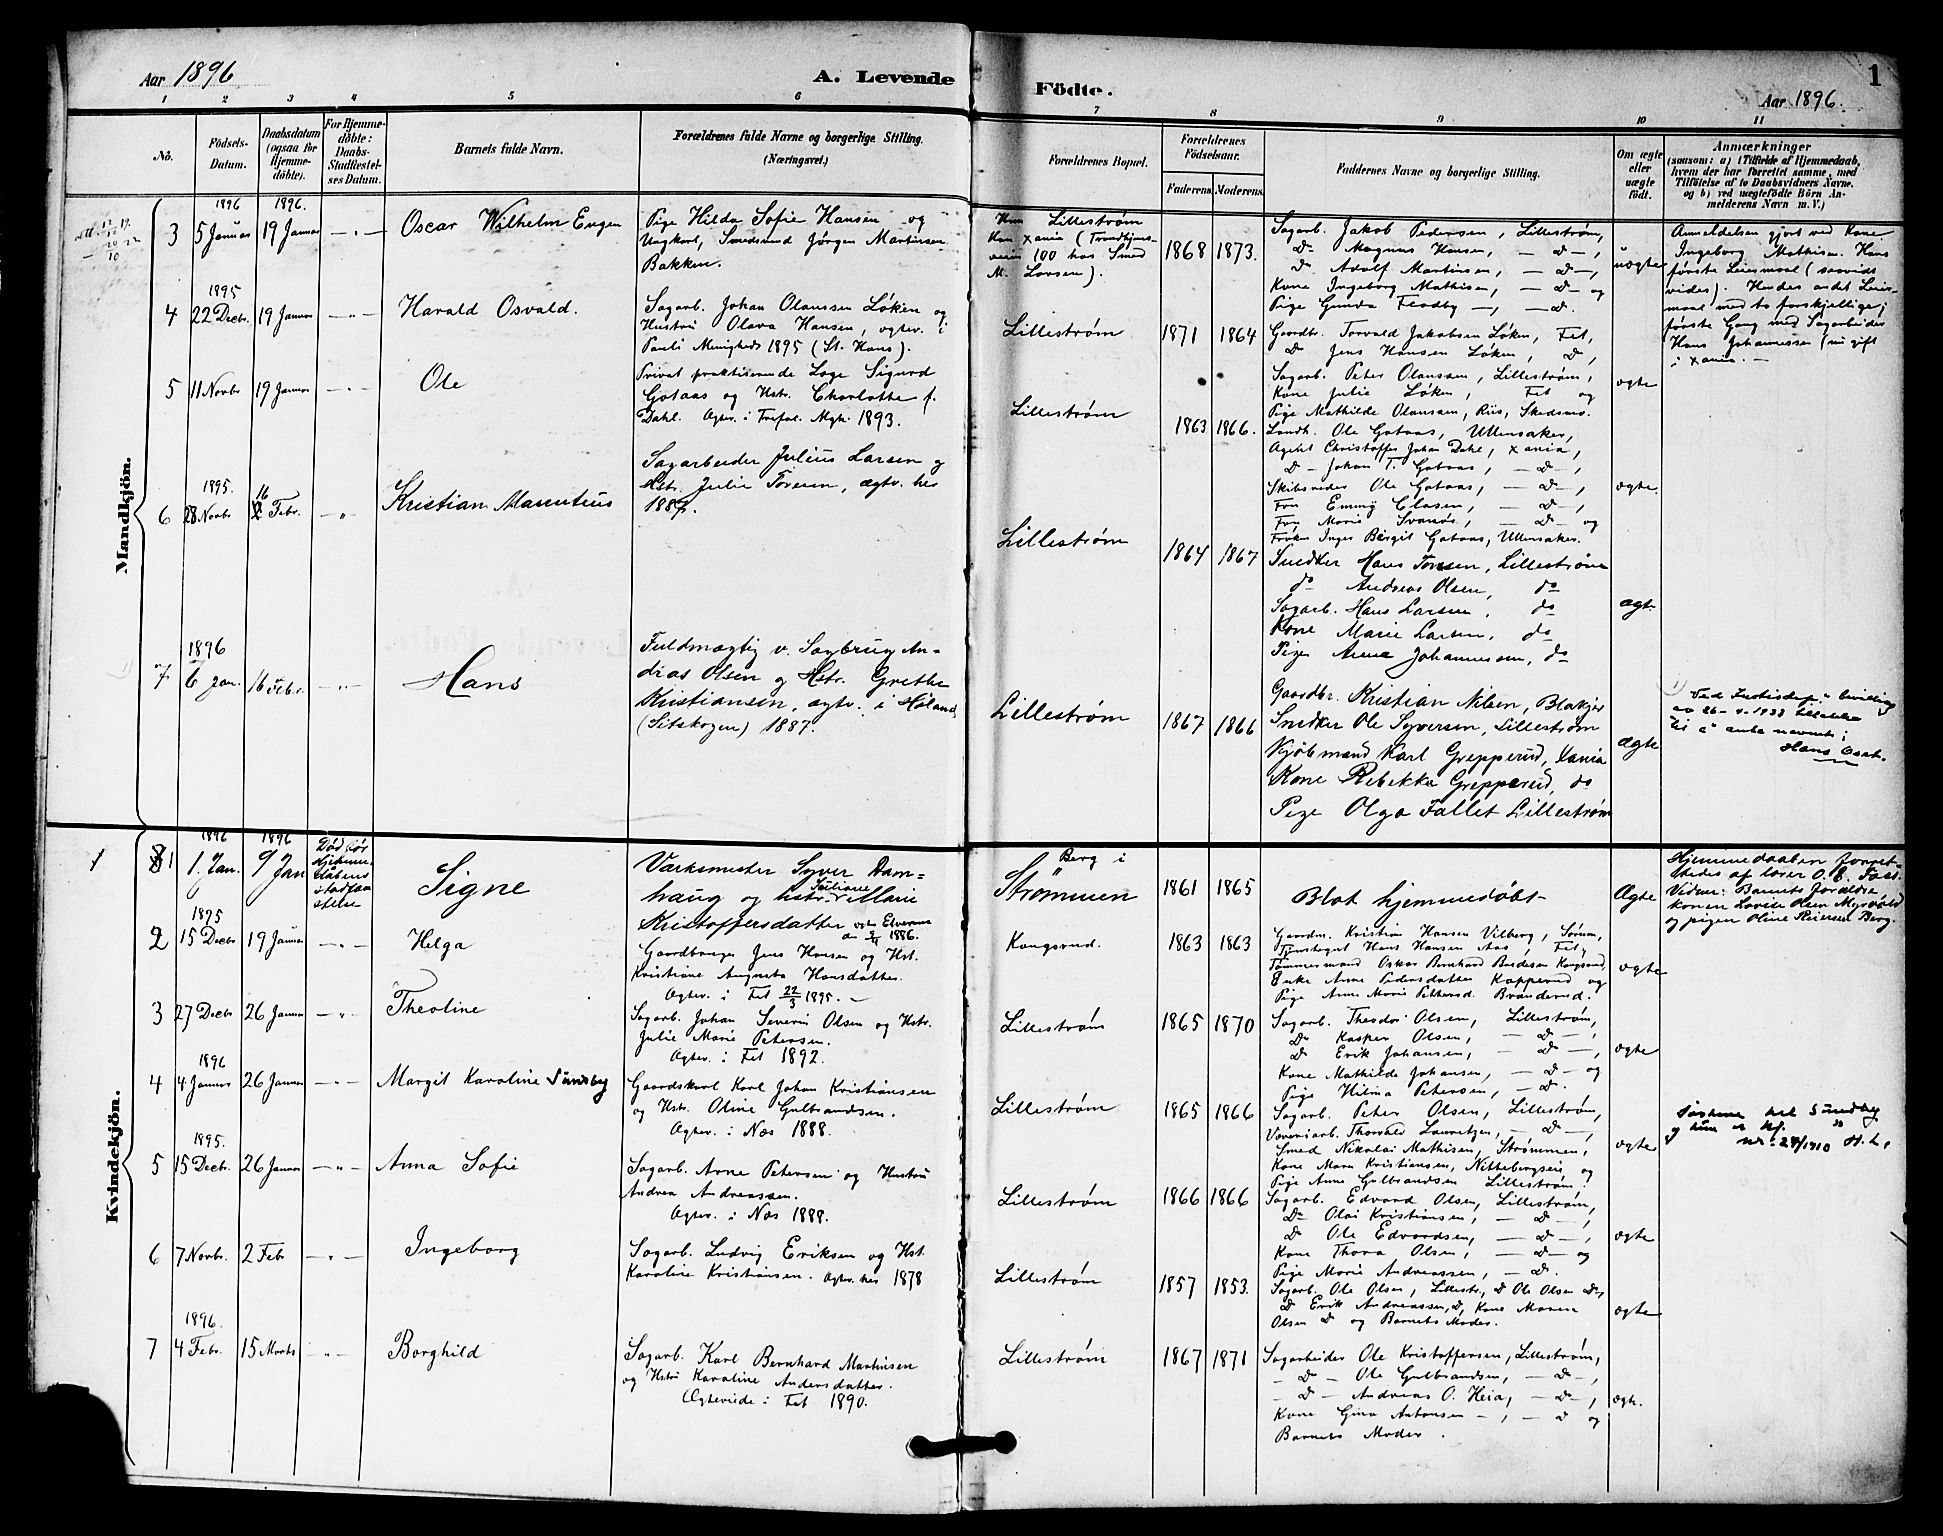 Aar 1896
A. Levende
Födte.
1
Aar 1896.
1 2 3 4 5 6 7 8 9 10 11
No.
Födsels-
Datum.
Daabsdatum
(ogsaa for
Hjemme-
döbte).
For Hjemme-
döbte:
Daabs-
Stadfæstel-
ses Datum.
Barnets fulde Navn.
Forældrenes fulde Navne og borgerlige Stilling.
(Næringsvei.)
Forældrenes Bopæl.
Forældrenes
Födselsaar.
Faderens. Moderens.
Faddernes Navne og borgerlige Stilling.
Om ægte
eller
uægte
födt.
Anmærkninger
(saasom: a) i Tilfælde af Hjemmedaab,
hvem der har forrettet samme, med
Tilföielse af to Daabsvidners Navne,
og b) ved uægtefödte Börn An-
melderens Navn m. V.)
Mandkjön.
1896 1896.
3 5 Januar 19 Januar — " —
Oscar Wilhelm Eugen
Pige Hilda Sofie Hansen og
Ungkarl, Smedsvend Jørgen Martinsen
Bakken.
Hun Lillestrøm
Han Xania (Trondhjems-
veien 100 hos Smed
M. Larsen).
1868 1873.
Sagarb. Jakob Pedersen, Lillestrøm,
Do Magnus Hansen, — d —,
Do Adolf Martinsen, — d —,
Kone Ingeborg Mathisen, — d — og
Pige Gunda Flodby —, — d.
uægte
Anmeldelsen gjort ved Kone
Ingeborg Mathisen. Hans
første Leiermaal (saavidt
vides). Hendes andet Leier-
maal med to forskjellige;
første Gang med Sagarbeider
Hans Johannessen (nu gift
i Xania. —
1895
4 22 Decbr. 19 Januar — " —
Harald Osvald.
Sagarb. Johan Olaussen Løken og
Hustru Olava Hansen, ægtev. i
Pauli Menighed 1895 (St. Hans).
Lillestrøm
1871 1864
Gaardbr. Torvald Jakobsen Løken, Fet,
Do Jens Hansen Løken, d,
Sagarb. Peter Olaussen, Lillestrøm,
Kone Julie Løken, Fet og
Pige Mathilde Olaussen, Riis, Skedsmo.
ægte
5 11 Novbr 19 Januar — " —
Ole
Privat praktiserende Læge Sigurd
Gotaas og Hstr. Charlotte f.
Dahl. Ægtev. i Trefol. Mgh. 1893.
Lillestrøm
1863 1866.
Landh. Ole Gotaas, Ullensaker,
Agent Christoffer Johan Dahl, Xania,
D — Johan T. Gotaas, — d —,
Skibsreder Ole Gotaas, — d —,
Fru Emmy Clasen, — d —,
Fru Marie Svanøe, — d — og
Frøken Inger Birgit Gotaas, Ullensaker.
ægte.
1895.
6 28 Novbr 16 Febr. — " —
Kristian Marentius
Sagarbeider Julius Larsen og
Hstr. Julie Toresen, ægtv. her
1887.
Lillestrøm
1864 1867
Snedker Hans Torsen, Lillestrøm
do Andreas Olsen, do
Sagarb. Hans Larsen, do
Kone Marie Larsen, do
Pige Anna Johannesen, do
ægt.
1896
7 6 Jan. 16 Febr. — " —
Hans
Fuldmægtig v. Sagbrug An-
dreas Olsen og Hstr. Grethe
Kristiansen, ægtv. i Høland
(Sitskogen) 1887.
Lillestrøm
1867 1866
Gaardbr. Kristian Nilsen, Blakjer
Snedker Ole Syversen, Lillestrøm
Kjøbmand Karl Grepperud, Xania
Kone Rebekka Grepperud, do
Pige Olga Fallet Lillestrøm
ægte
1) Ved Justisdep.s bevilling
av 26-4-1933 tillatelse
til å anta navnet:
Hans Aset.
Kvindekjön.
1896 1896
1 1. Jan. 9 Jan
Død før
Hjemme-
daabens
stadfæ
stelse
Signe
Værksmester Syver Dam-
haug og hstr. Juliane Marie
Kristoffersdatter vgtv. Elverum
1886.
Berg i
Strømmen
1861 1865
Blot hjemmedøbt
Ægte
Hjemmedaaben forret-
tedes af lærer O. E. Fast
Vidner: Barnets forældre,
konen Lovise Olsen Myrvold
og pigen Oline Reiersen Berg.
1895
2 15 Decbr 19 Januar — " —
Helga
Gaardbruger Jens Hansen og Hst.
Kristiane Augusta Hansdatter.
Ægtev. i Fet 22/3 1895. —
Kongsrud.
1863 1863
Gaardm. Kristian Hansen Vilberg, Sørum,
Hans Hansen Aas, Fet,
Tømmermand Oskar Bernhard Bardesen Kongsrud,
Enke Anne Pedersdatter Kopperud og
Pige Anne Marie Pettersd. Branderud.
ægte
3 27 Decbr 26 Januar — " —
Theoline
Sagarb. Johan Severin Olsen og Hstr.
Julie Marie Petersen.
Ægtev. i Fet 1892.
Lillestrøm
1865 1870
Sagarb. Theodor Olsen, Lillestrøm,
Do Kasper Olsen, — d —,
D Erik Johansen, — d —,
Kone Mathilde Johansen, — d — og
Pige Hilma Petersen, — d.
ægte
1896
4 4 Januar 26 Januar — " —
Margit Karoline Sundby
Gaardskarl Karl Johan Kristiansen
og Hstr. Oline Gulbrandsen.
Ægtev. i Næs 1888.
Lillestrøm
1865 1866
Sagarb. Peter Olsen, Lillestrøm,
Væveriarb. Thorvald Lauritzen, — d —,
Smed Nikolai Mathisen, Strømmen,
Kone Maren Kristiansen, Nittebergseie og
Pige Anne Gulbrandsen Lillestrøm.
ægte
Sundby
nr. 27/1910 H. L.
1895.
5 15 Decbr. 26 Januar — " —
Anna Sofie
Sagarb. Arne Petersen og Hustru
Andrea Andreassen.
Ægtev. i Næs 1888.
Lillestrøm
1866 1866
Sagarb. Edvard Olsen, Lillestrøm,
Do Olai Kristiansen, — d —,
D Ole Edvardsen, — d —,
Kone Thora Olsen, — d — og
Pige Marie Andreassen, — d.
ægte
6 7 Novbr. 2 Febr — " —
Ingeborg
Sagarb. Ludvig Eriksen og Hst.
Karoline Kristiansen. Ægtev. her 1878
Lillestrøm
1857 1853.
Sagarb. Ole Olsen, Lillestr., D Ole Olsen Do,
D Erik Andreassen, D, Kone Maren
Olsen D og Barnets Moder.
ægte
1896.
7 4 Febr. 15 Marts — " —
Borghild
Sagarb. Karl Bernhard Martinsen
og Hstru Karoline Andersdatter.
Ægteviede i Fet 1890.
Lillestrøm
1867 1871
Sagarbeider Ole Kristoffersen, Lillestrøm,
— D — Ole Gulbrandsen, — d —,
— D — Andreas O. Heia, — d —,
Kone Gina Antonsen —, — d og
Barnets Moder.
ægte.